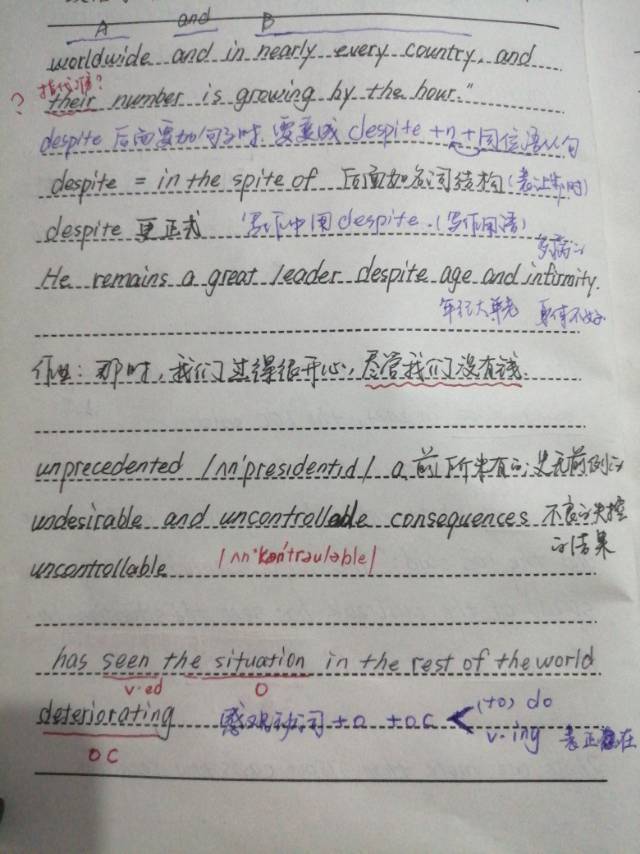 A and B
worldwide and in nearly every country, and
? 指代谁?
their number is growing by the hour."
despite 后面要加句子时,要变成 despite + n + 同位语从句
despite = in the spite of 后面加名词结构(表让步时)
despite 更正式 写作中用despite.(写作用语)
多病的
He remains a great leader despite age and infirmity.
年纪大 身体不好
作业:那时,我们过得很开心,尽管我们没有钱.
unprecedented /ʌn'presidentid/ a 前所未有的;史无前例的
undesirable and uncontrollable consequences 不良的失控
的结果
uncontrollable /ʌn'kəntrəuləble/
has seen the situation in the rest of the world
v-ed O
deteriorating 感观动词 + o + oc < (to) do
v-ing 表正在
OC